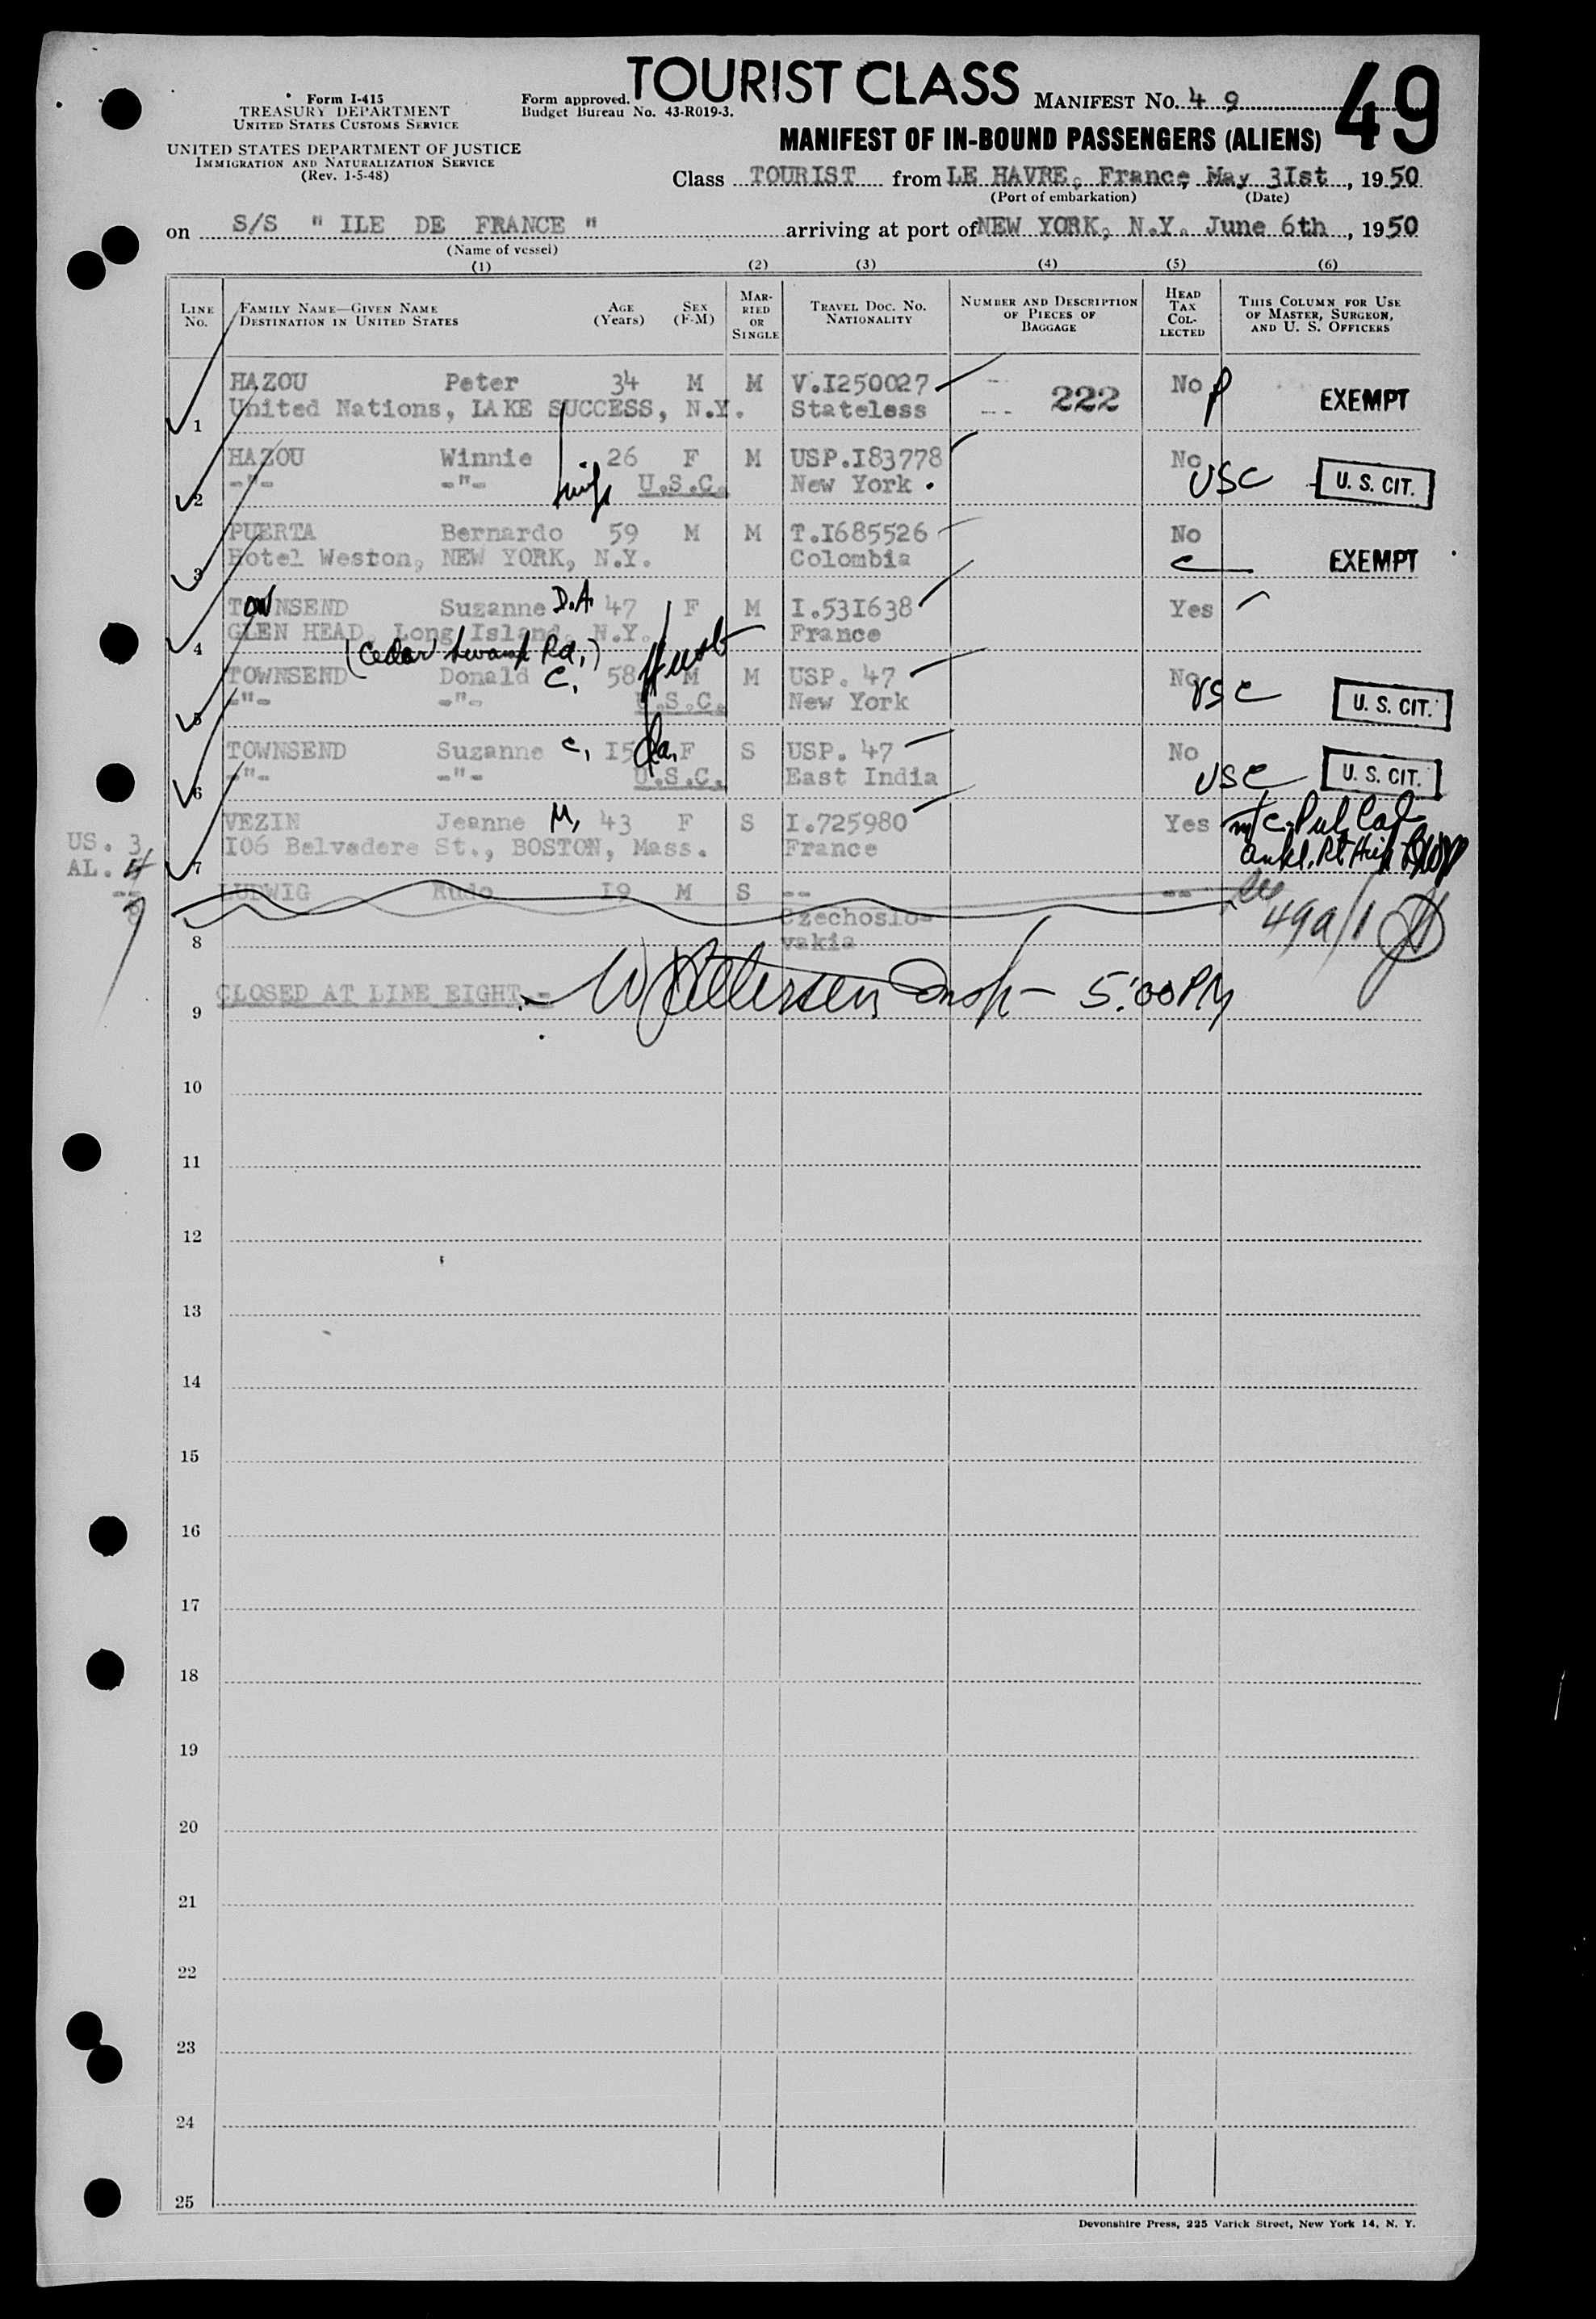 TOURIST CLASS
49
Form I-415
TREASURY DEPARTMENT
UNITED STATES CUSTOMS SERVICE
UNITED STATES DEPARTMENT OF JUSTICE
IMMIGRATION AND NATURALIZATION SERVICE
(Rev. 1-5-48)
Form approved.
Budget Bureau No. 43-R019-3.
MANIFEST NO. 4 9
MANIFEST OF IN-BOUND PASSENGERS (ALIENS)
Class TOURIST from LE HAVRE, France, May 3Ist, 1950
(Port of embarkation) (Date)
on S/S " ILE DE FRANCE " arriving at port of NEW YORK, N.Y. June 6th, 1950
(Name of vessel)
(1) (2) (3) (4) (5) (6)
LINE NO. FAMILY NAME—GIVEN NAME DESTINATION IN UNITED STATES AGE (Years) SEX (F-M) MARRIED OR SINGLE TRAVEL DOC. NO. NATIONALITY NUMBER AND DESCRIPTION OF PIECES OF BAGGAGE HEAD TAX COLLECTED THIS COLUMN FOR USE OF MASTER, SURGEON, AND U. S. OFFICERS
HAZOU Peter 34 M M V.I250027 -- 222 No P EXEMPT
1 United Nations, LAKE SUCCESS, N.Y. Stateless --
HAZOU Winnie 26 F M USP.I83778 No USC U. S. CIT.
2 -"- -"- U.S.C. New York
PUERTA Bernardo 59 M M T.I685526 No
3 Hotel Weston, NEW YORK, N.Y. Colombia C EXEMPT
TOWNSEND Suzanne D.A. 47 F M I.53I638 Yes
4 GLEN HEAD, Long Island, N.Y. France
(Cedar Swamp Rd.)
TOWNSEND Donald C. 58 M M USP. 47 No USC U. S. CIT.
5 -"- -"- U.S.C. New York
TOWNSEND Suzanne C. I5 Da. F S USP. 47 No
6 -"- -"- U.S.C. East India USC U. S. CIT.
VEZIN Jeanne M. 43 F S I.725980 Yes
7 I06 Belvedere St., BOSTON, Mass. France
US. 3
AL. 4
--
7
LUDWIG Rudo I9 M S -- --
8 Czechoslo-
vakia
49a/1
9 CLOSED AT LINE EIGHT.- 5:00 PM
10
11
12
13
14
15
16
17
18
19
20
21
22
23
24
25
Devonshire Press, 225 Varick Street, New York 14, N. Y.